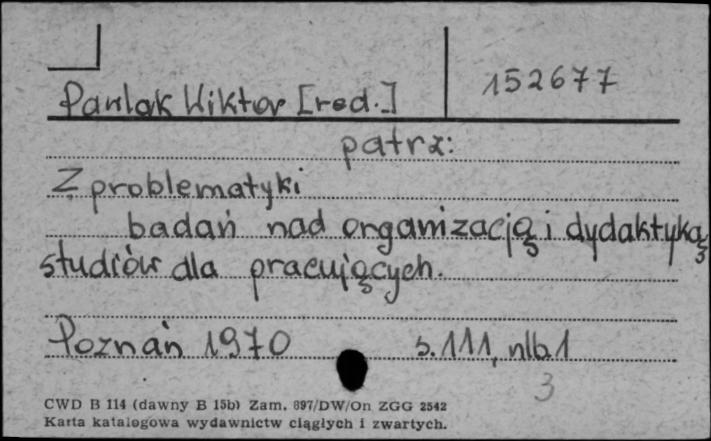 Pawlak Wiktor [red.] 152677
patrz:
Z problematyki
badań nad organizacją i dydaktyką
studiów dla pracujących.
Poznań 1970 s. 111, nlb. 1
3
CWD B 114 (dawny B 15b) Zam. 897/DW/On ZGG 2542
Karta katalogowa wydawnictw ciągłych i zwartych.